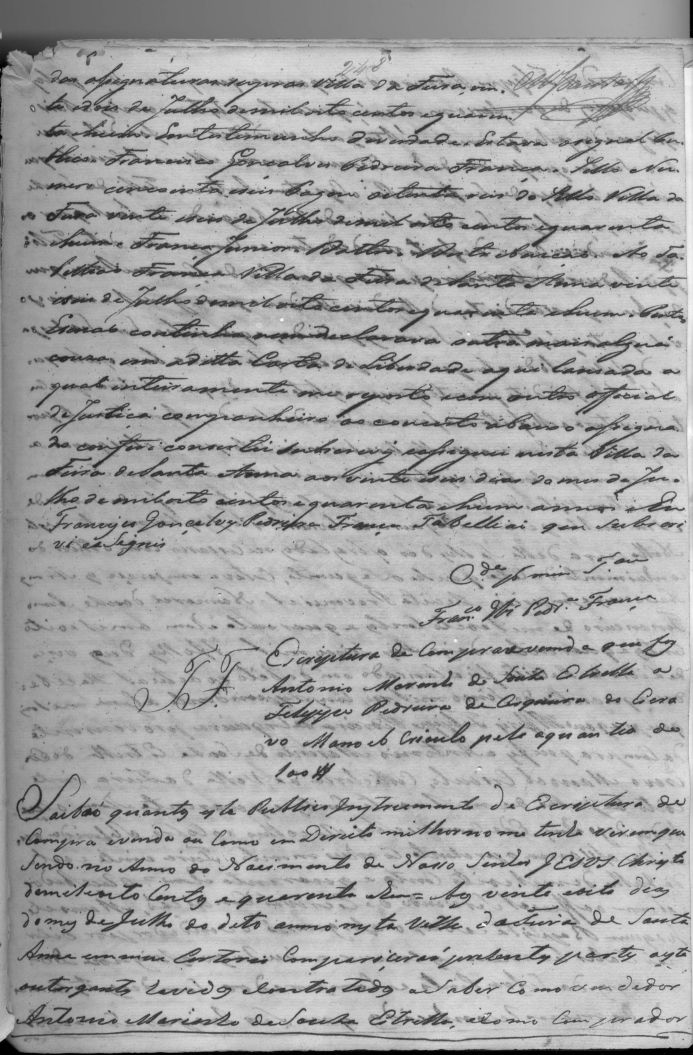 248
das assignaturas rogivas Villa da Feira vin-
te e seis de Julho de mil oito centos e quaren-
ta e hum. Em testemunho de verdade. Estava o signal pu-
blico. Francisco Gonçalves Pedreira França. Sello Nu-
mero cincoenta e seis Pagou oitenta reis de Sello Villa da
Feira vinte e seis de Julho de mil oito centos e quarenta
e hum. França Junior. Bastos. Ao Ta-
bellião França Villa da Feira de Santa Anna vinte
e seis de Julho de mil oito centos e quarenta e hum.
E não continha nem declarava outra mais algua
cousa em a ditta Carta de Liberdade aqui lansada a
qual inteiramente me reporto e com outro official
de Justiça companheiro ao concerto abaixo assigna-
do conferi concertei subscrevi e assignei nesta Villa da
Feira de Santa Anna aos vinte e seis dias do mes de Ju-
lho de mil oito centos e quarenta e hum annos e Eu
Francisco Gonçalves Pedreira França Tabelliaõ que subscre
vi e asignei
C.da p.r mim T.am
Fran.co Glz Pedr.a França
Escreptura de Compra e venda que faz
Antonio Marinho de Santa Estrella a
Felippe Pedreira de Cirqueira do Escra
vo Manoel Crioulo pela a quantia de
100$
Saibaõ quantos este Publico Instrumento de Escreptura de
Compra e venda ou como em Direito milhor nome tenha virem que
Sendo no Anno do Nacimento de Nosso Senhor JESUS Christo
de mil e oito Centos e quarenta e hum Aos vinte e oito dias
do mes de Julho do dito anno nesta Villa da Feira de Santa
Anna em meu Cartorio Compareceraõ prezentes partes a esta
outorgantes havidos e contratados a Saber Como vendedor
Antonio Marinho de Santa Estrella, e como Comprador